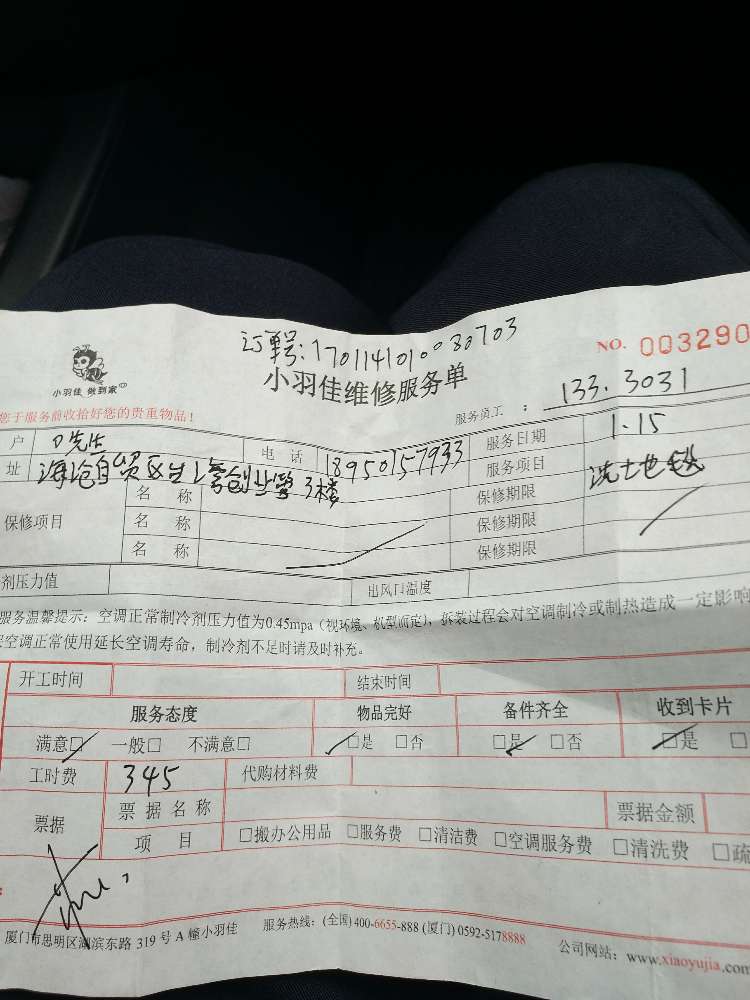 订单号:1701141010080703
NO. 003290
小羽佳 做到家
小羽佳维修服务单
您于服务前收拾好您的贵重物品!
服务员工 : 133.3031
户 先生 电 话 18950157933 服务日期 1.15
址 海沧自贸区生 创业营3楼 服务项目 洗土地毯
保修项目 名 称 保修期限
名 称 保修期限
名 称 保修期限
剂压力值 出风口温度
服务温馨提示:空调正常制冷剂压力值为0.45mpa(视环境、机型而定),拆装过程会对空调制冷或制热造成一定影响
空调正常使用延长空调寿命,制冷剂不足时请及时补充。
开工时间 结束时间
服务态度 物品完好 备件齐全 收到卡片
满意□ 一般□ 不满意□ □是 □否 □是 □否 □是 □
工时费 345 代购材料费
票据 票 据 名 称 票据金额
项 目 □搬办公用品 □服务费 □清洁费 □空调服务费 □清洗费 □疏
厦门市思明区湖滨东路 319 号 A 幢小羽佳 服务热线:(全国)400-6655-888 (厦门) 0592-5178888 公司网站:www.xiaoyujia.com